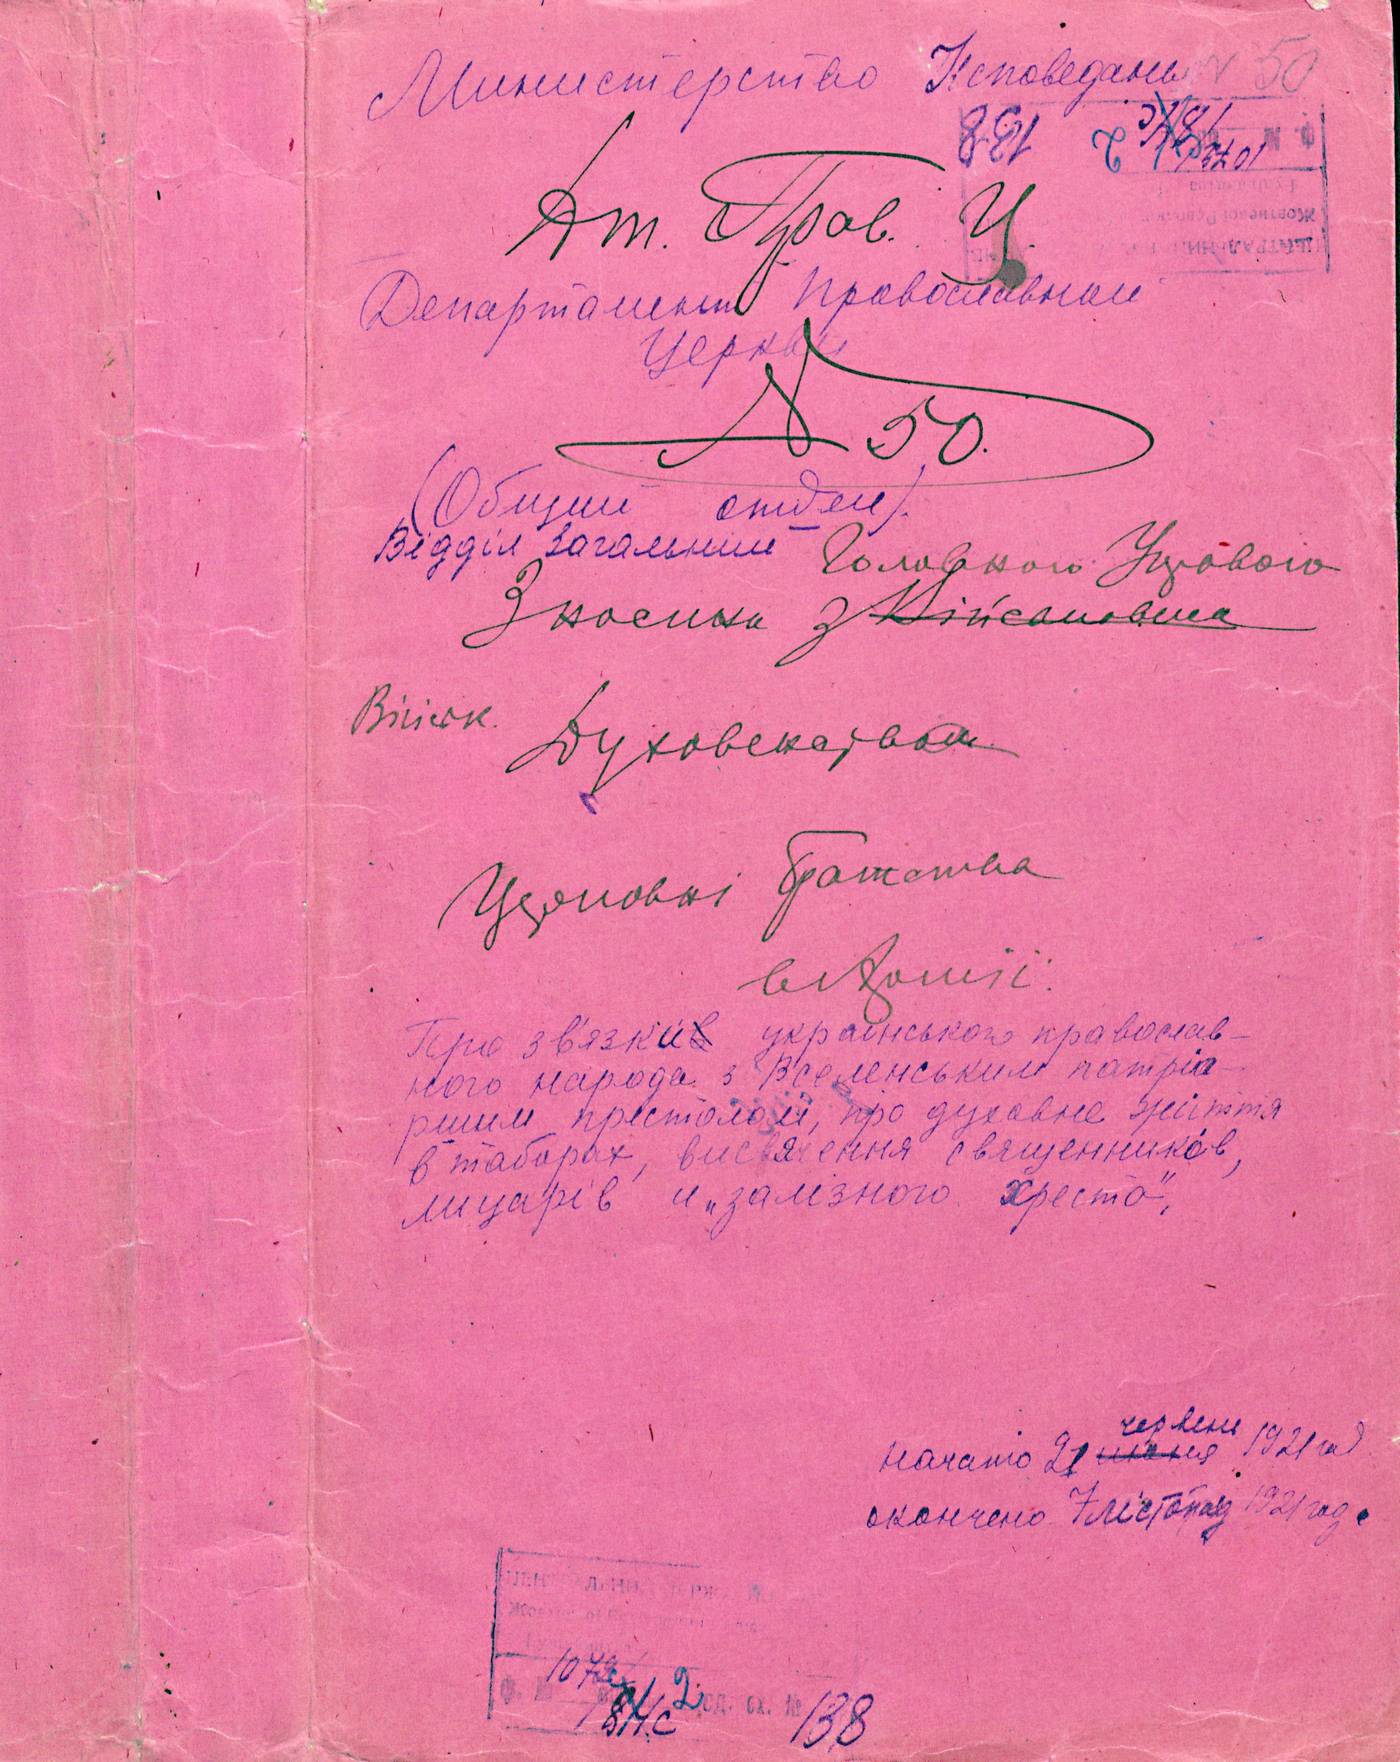 Министерство Исповедань № 50
138 2 1072
Дт. Прав. Ц.
Департамент Православной
Церкви
№ 50.
(Общий отдел).
Відділ Загальний Головного Церковного
Зносини з
Військ. Духовенством
Церковні Братства
в Армії.
Про зв'язки українського православ-
ного народа з Вселенським патріа-
ршим престолом, про духовне життя
в таборах, висвячення священників,
лицарів и „залізного хреста".
червень
начато 21 июня 1921 год
окончено 7 лістопад 1921 год.
1072
Ф. № 2 од. зх. № 138